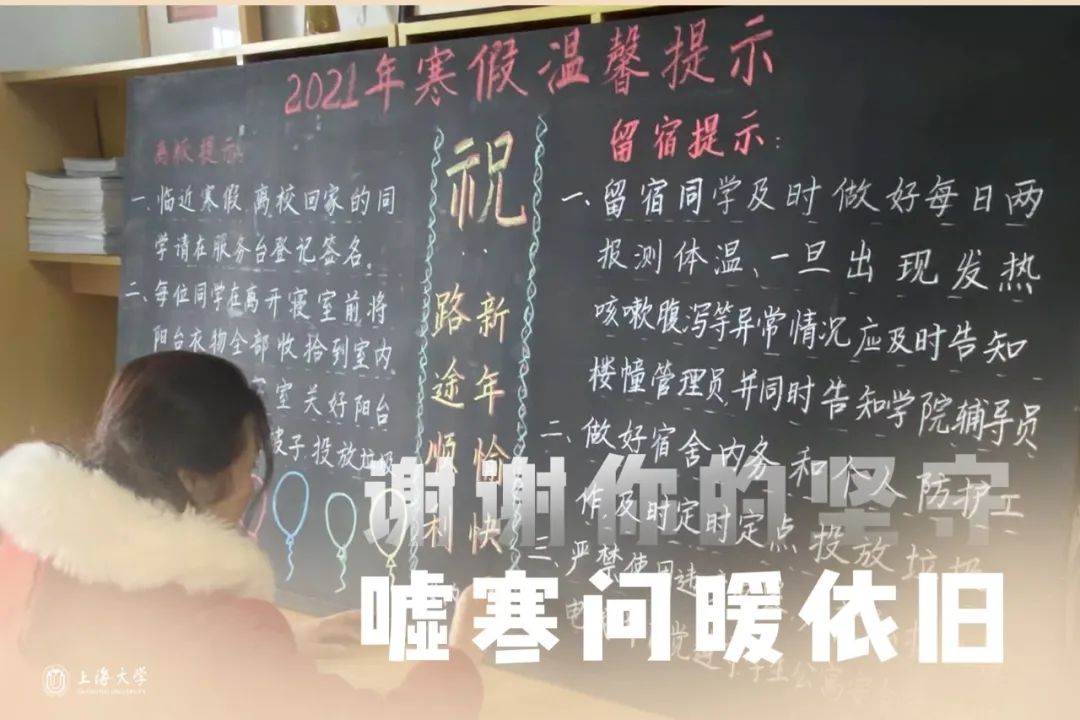 2021年寒假温馨提示
离校提示:
一、临近寒假,离校回家的同
学请在服务台登记签名。
二、每位同学在离开寝室前将
阳台衣物全部收拾到室内,
室关好阳台
子投放垃圾
祝
新年愉快
路途顺利
留宿提示:
一、留宿同学及时做好每日两
报测体温、一旦出现发热
咳嗽腹泻等异常情况应及时告知
楼幢管理员,并同时告知学院辅导员
二、做好宿舍内务和个人防护工
作,及时定时定点投放垃圾
三、严禁使用违
电
学生公寓
谢谢你的坚守
嘘寒问暖依旧
上海大学
SHANGHAI UNIVERSITY